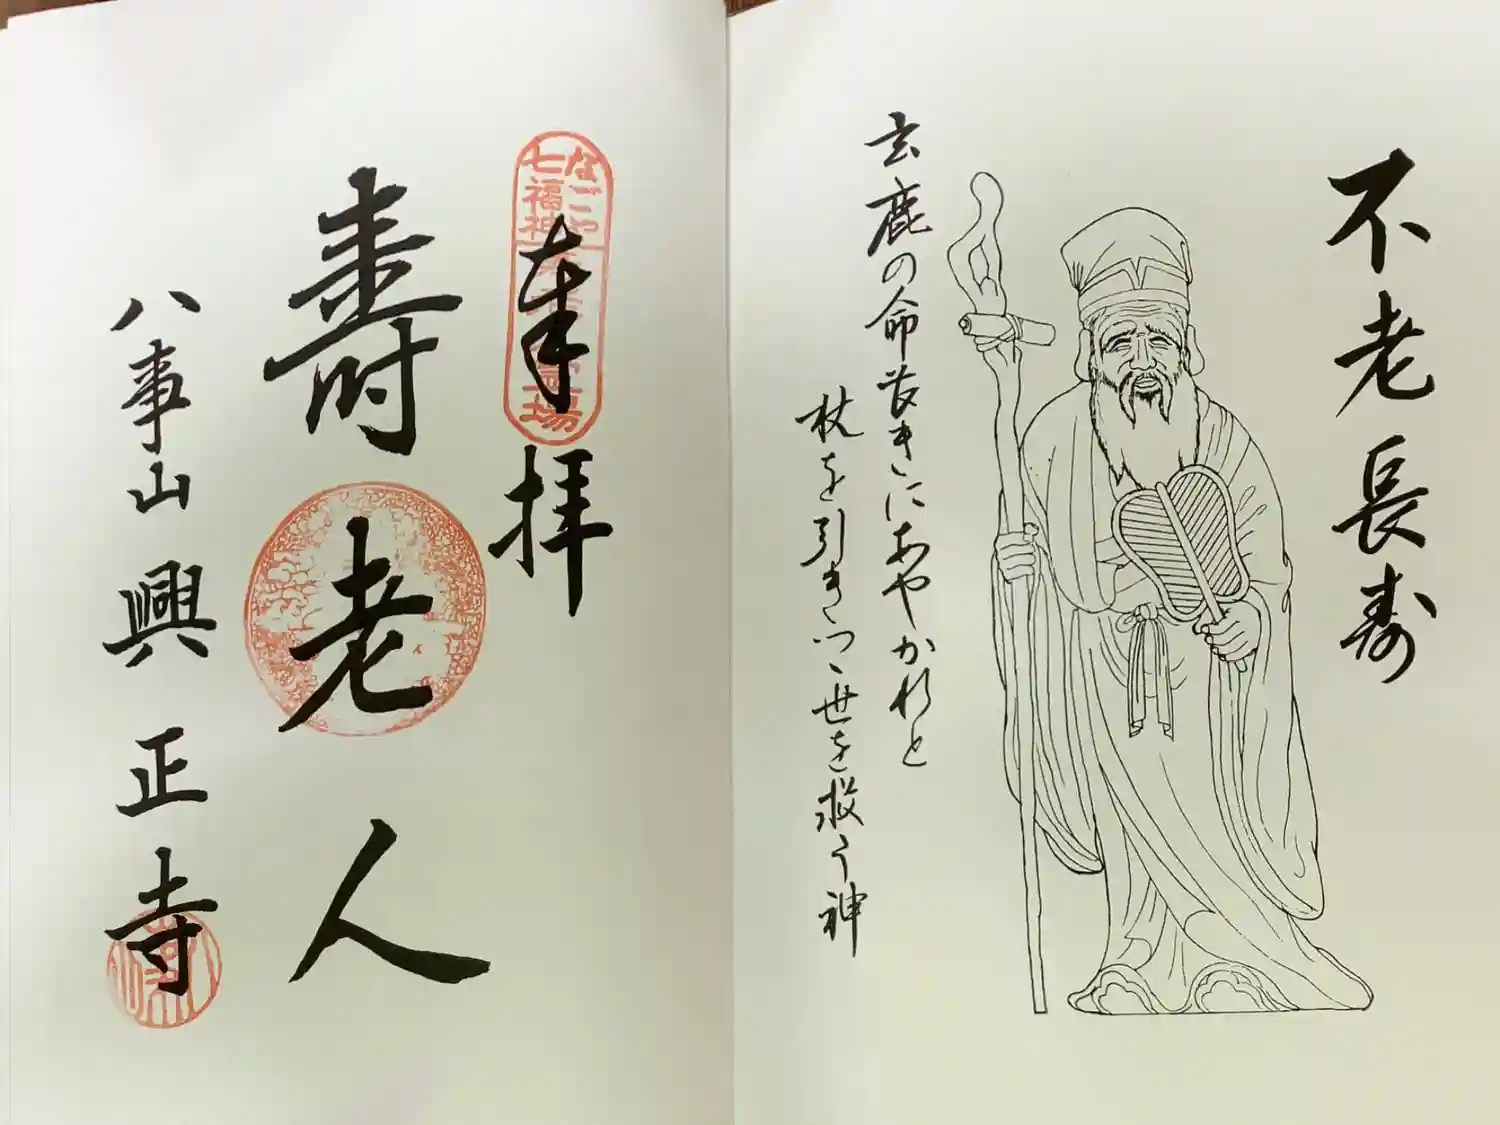 不老長寿
玄鹿の命長きにあやかれと
杖を引きつゝ世を救う神
なごや
七福神
霊場
奉拝
壽老人
八事山興正寺